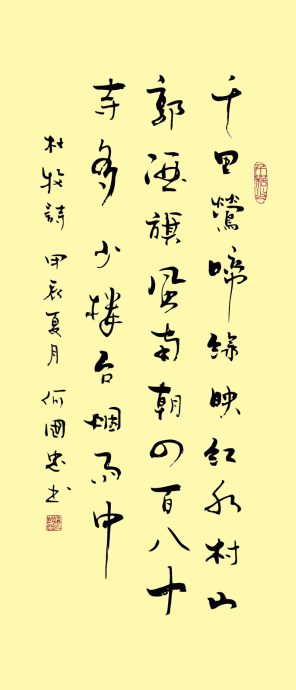 千里鶯啼綠映紅水村山
郭酒旗風南朝四百八十
寺多少樓台烟雨中
杜牧詩 甲辰夏月 何國忠书